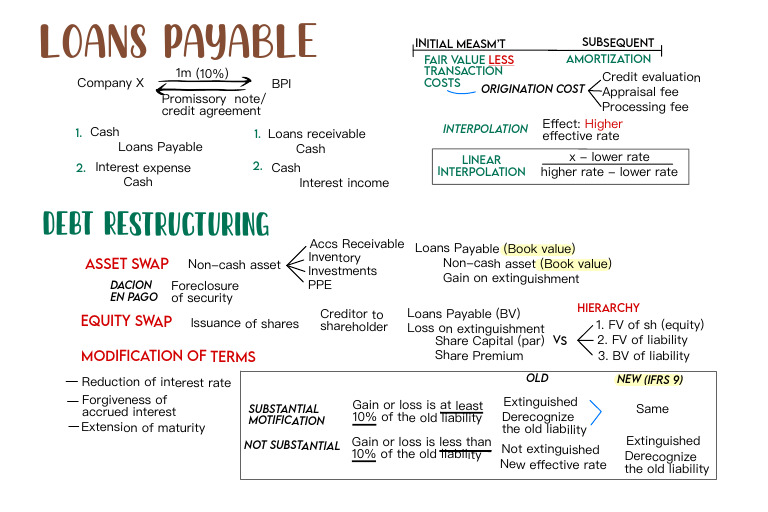 LOANS PAYABLE
Company X
1m (10%)
BPI
Promissory note/
credit agreement
1. Cash
Loans Payable
2. Interest expense
Cash
1. Loans receivable
Cash
2. Cash
Interest income
INITIAL MEASM'T
SUBSEQUENT
FAIR VALUE LESS
TRANSACTION
COSTS
AMORTIZATION
ORIGINATION COST
Credit evaluation
Appraisal fee
Processing fee
INTERPOLATION
Effect: Higher
effective rate
LINEAR
INTERPOLATION
x – lower rate
higher rate – lower rate
DEBT RESTRUCTURING
ASSET SWAP
Non-cash asset
Accs Receivable
Inventory
Investments
PPE
Loans Payable (Book value)
Non-cash asset (Book value)
Gain on extinguishment
DACION
EN PAGO
Foreclosure
of security
EQUITY SWAP
Issuance of shares
Creditor to
shareholder
Loans Payable (BV)
Loss on extinguishment
Share Capital (par)
Share Premium
VS
HIERARCHY
1. FV of sh (equity)
2. FV of liability
3. BV of liability
MODIFICATION OF TERMS
— Reduction of interest rate
— Forgiveness of
accrued interest
— Extension of maturity
OLD
NEW (IFRS 9)
SUBSTANTIAL
MOTIFICATION
Gain or loss is at least
10% of the old liability
Extinguished
Derecognize
the old liability
Same
NOT SUBSTANTIAL
Gain or loss is less than
10% of the old liability
Not extinguished
New effective rate
Extinguished
Derecognize
the old liability